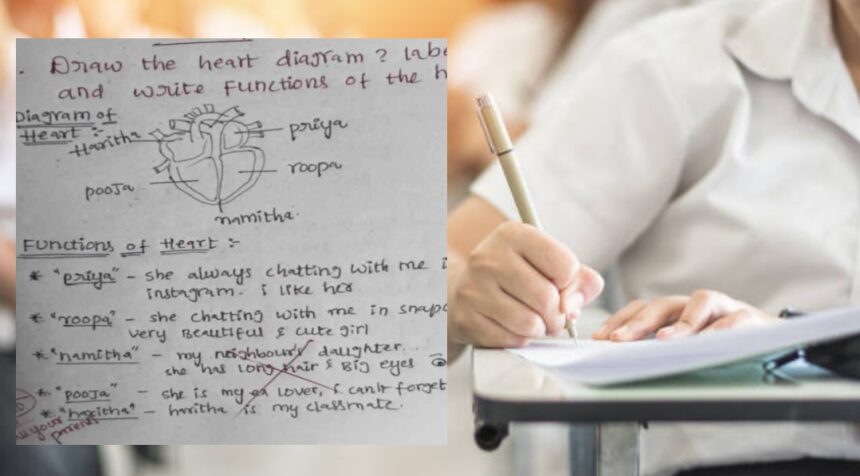 . Draw the heart diagram ? labe
and write Functions of the h
Diagram of
Heart :-
Haritha
priya
roopa
pooja
namitha.
Functions of Heart :-
* "priya" - she always chatting with me i
instagram. i like her
* "roopa" - she chatting with me in snapc
very Beautiful & cute girl
* "namitha" - my neighbour's daughter...
she has long hair & Big eyes
* "pooja" - she is my ex lover, i can't forget
* "haritha" - haritha is my classmate.
your
parents